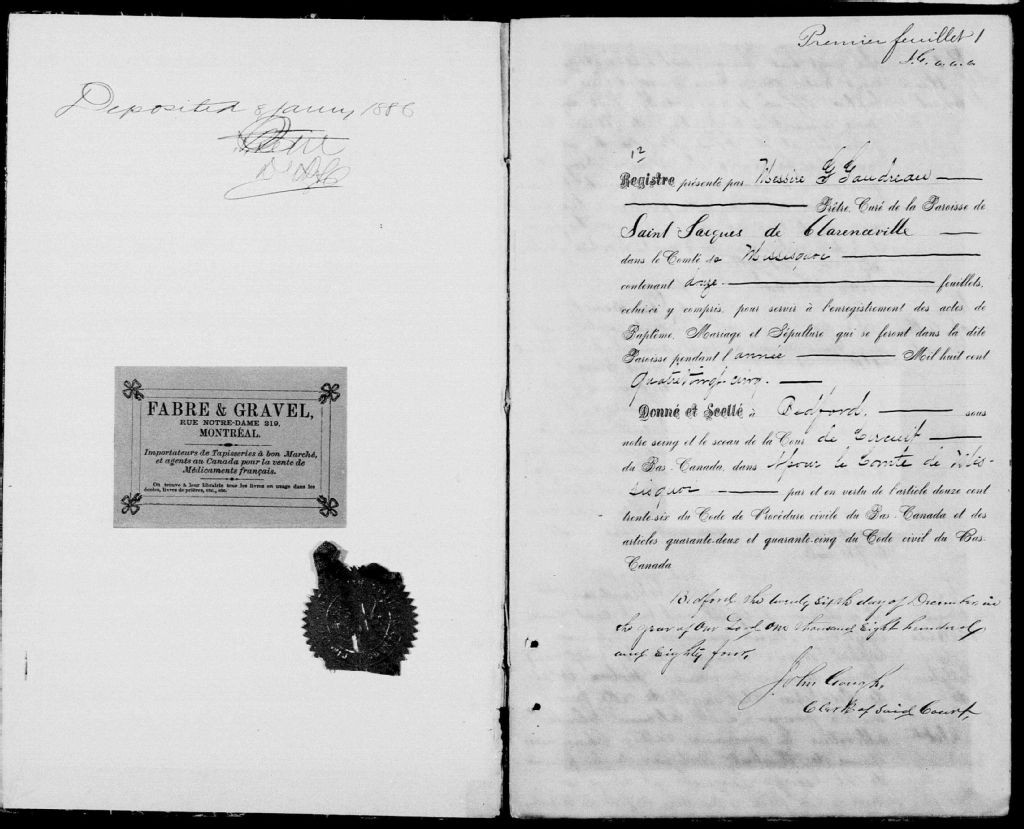 Deposited 8 Jany 1886
FABRE & GRAVEL,
RUE NOTRE-DAME 219,
MONTRÉAL.
Importateurs de Tapisseries à bon Marché,
et agents au Canada pour la vente de
Médicaments français.
On trouve à leur librairie tous les livres en usage dans les
écoles, livres de prières, etc., etc.
Premier feuillet 1
Registre présenté par Messire G Gaudreau
Prêtre, Curé de la Paroisse de
Saint Jacques de Clarenceville
dans le Comté de Missisquoi
contenant douze feuillets,
celui-ci y compris, pour servir à l'enregistrement des actes de
Baptême, Mariage et Sépulture qui se feront dans la dite
Paroisse pendant l'année Mil huit cent
Quatrevingt-cinq.
Donné et Scellé à Bedford. sous
notre seing et le sceau de la Cour de Circuit
du Bas-Canada, dans & pour le Comté de Mis-
sisquoi par et en vertu de l'article douze cent
trente-six du Code de Procédure civile du Bas-Canada et des
articles quarante-deux et quarante-cinq du Code civil du Bas-
Canada
Bedford the twenty sixth day of December, in
the year of Our Lord One thousand Eight hundred
and Eighty four,
John Gough,
Clerk of said Court,